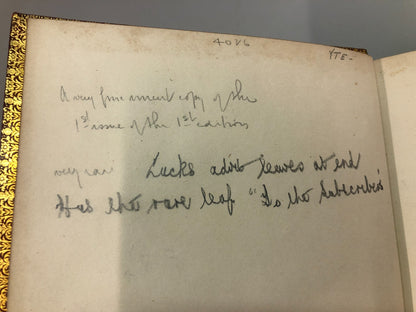 4086
YTE-
A very fine uncut copy of the
1st issue of the 1st edition
very rare Lacks advts leaves at end
Has the rare leaf "To the Subscribers